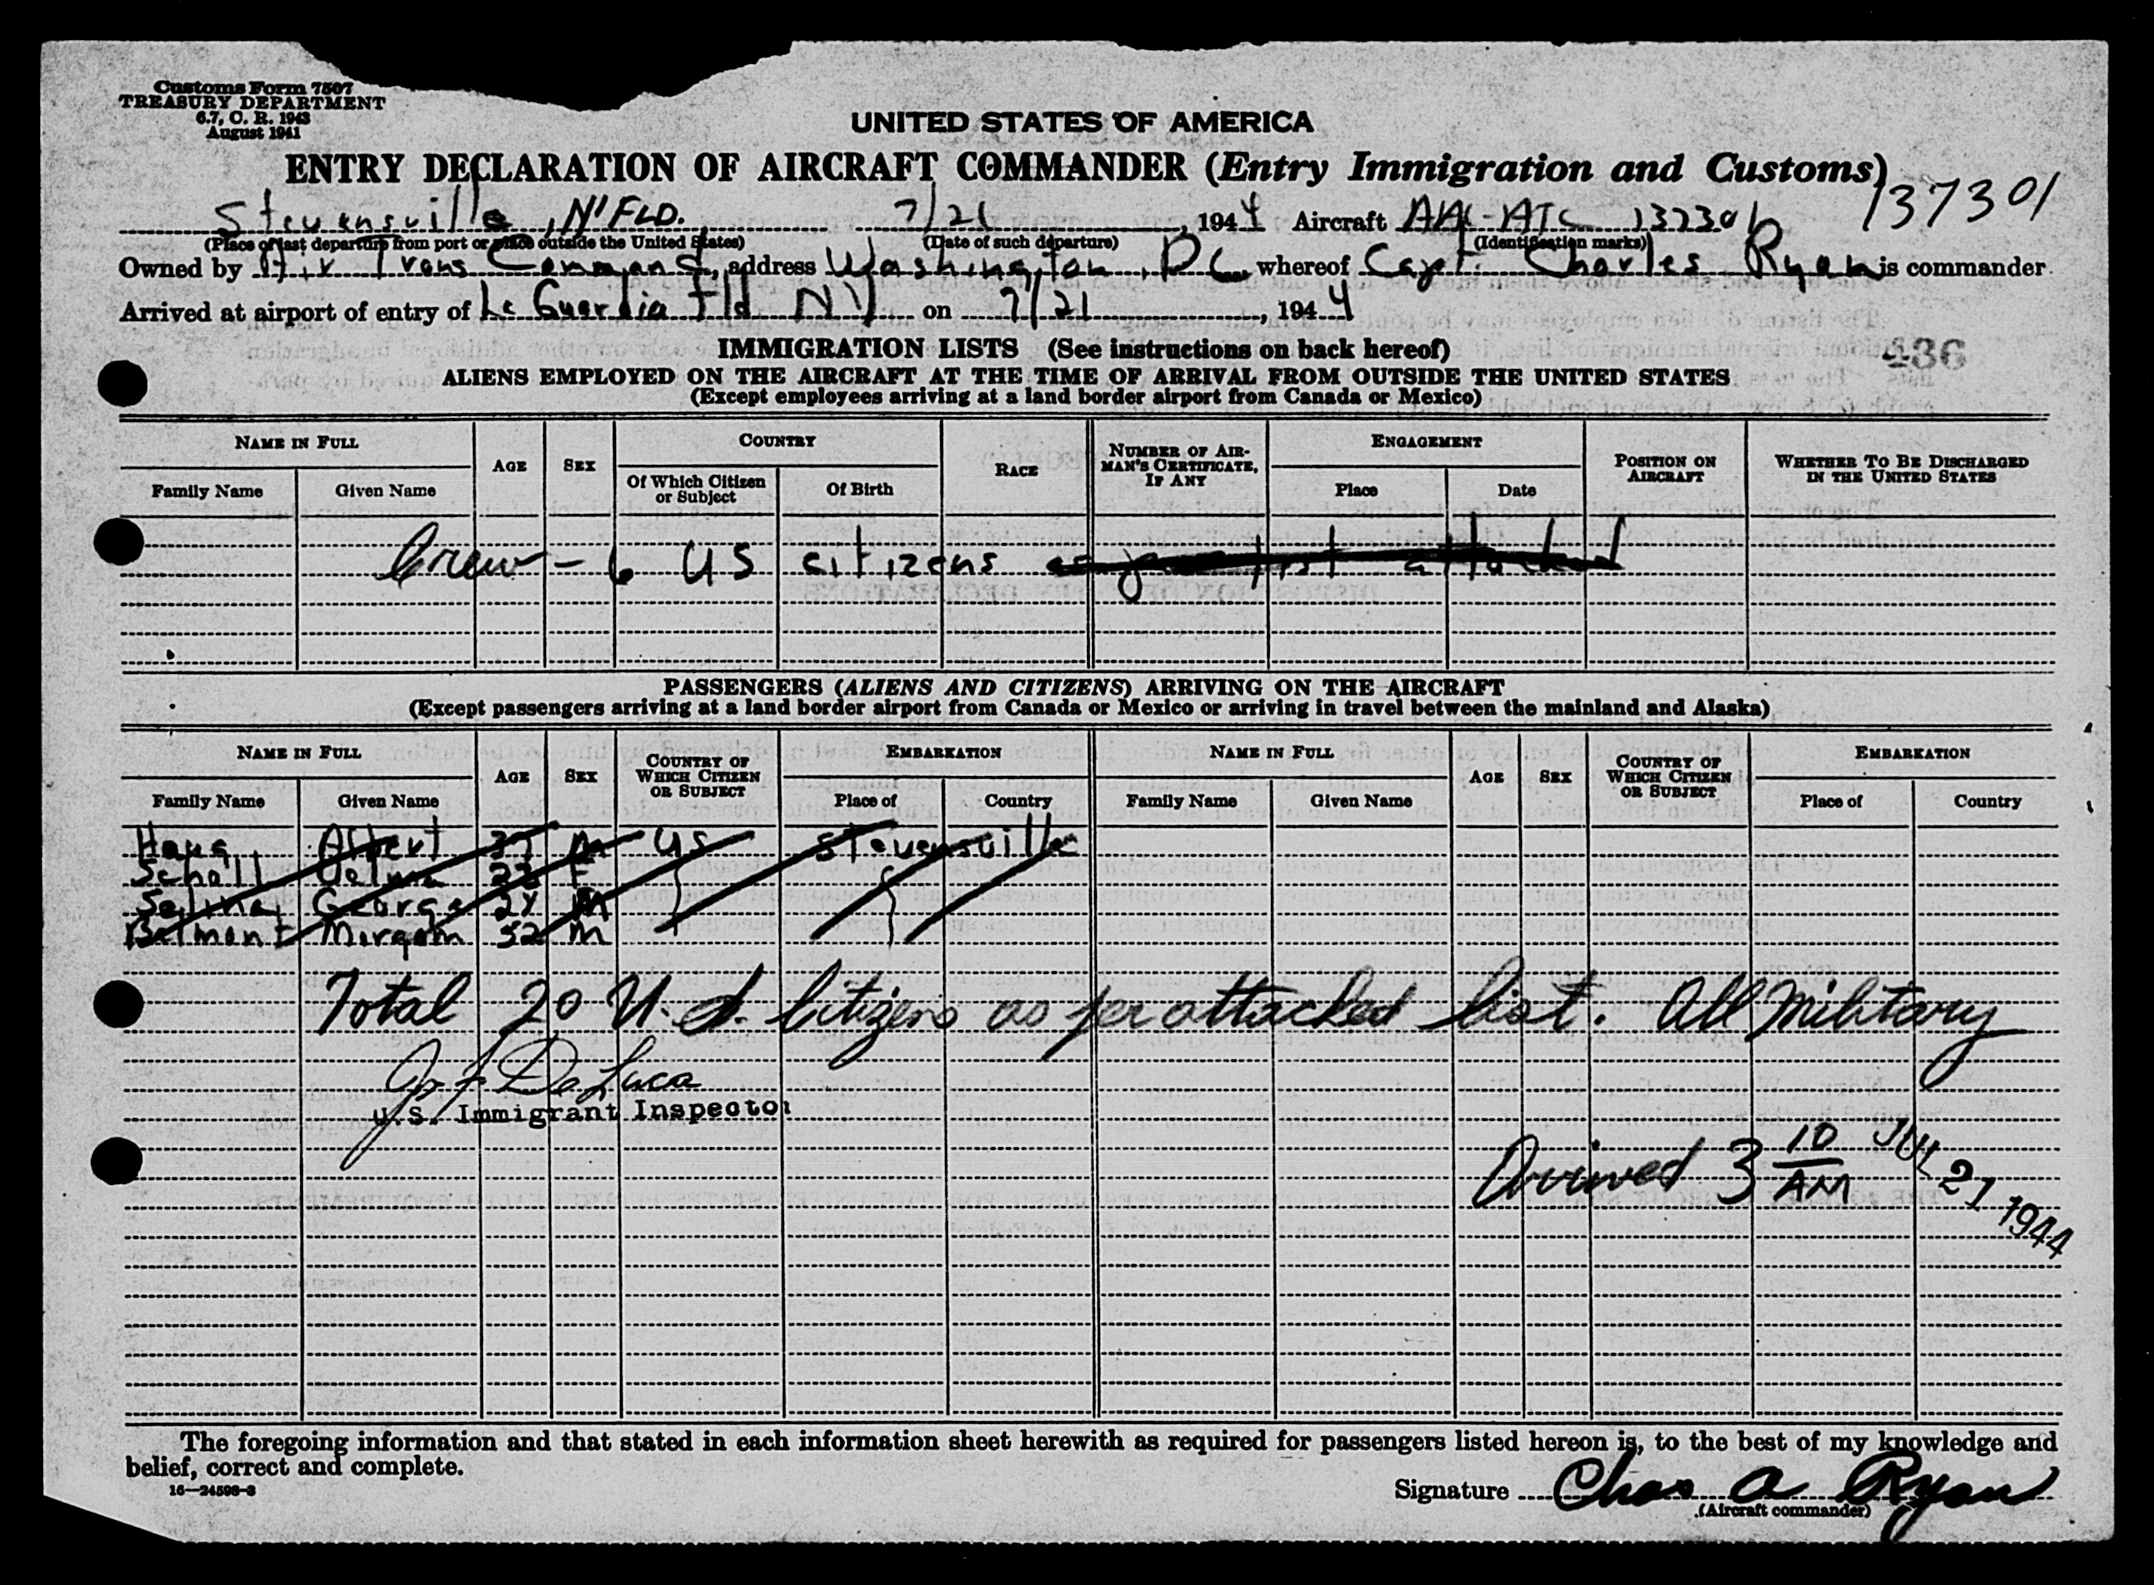 Customs Form 7507
TREASURY DEPARTMENT
6.7, C. R. 1943
August 1941
UNITED STATES OF AMERICA
ENTRY DECLARATION OF AIRCRAFT COMMANDER (Entry Immigration and Customs)
137301
Stevensville, N'FLD. 7/21, 1944 Aircraft AAC-ATC 137301
(Place of last departure from port or place outside the United States) (Date of such departure) (Identification marks)
Owned by Air Trans Command, address Washington, DC, whereof Capt. Charles Ryan is commander.
Arrived at airport of entry of La Guardia Fld NY on 7/21, 1944
IMMIGRATION LISTS (See instructions on back hereof)
436
ALIENS EMPLOYED ON THE AIRCRAFT AT THE TIME OF ARRIVAL FROM OUTSIDE THE UNITED STATES
(Except employees arriving at a land border airport from Canada or Mexico)
NAME IN FULL AGE SEX COUNTRY RACE NUMBER OF AIRMAN'S CERTIFICATE, IF ANY ENGAGEMENT POSITION ON AIRCRAFT WHETHER TO BE DISCHARGED IN THE UNITED STATES
Family Name Given Name Of Which Citizen or Subject Of Birth Place Date
Crew - 6 US citizens as per list attached
PASSENGERS (ALIENS AND CITIZENS) ARRIVING ON THE AIRCRAFT
(Except passengers arriving at a land border airport from Canada or Mexico or arriving in travel between the mainland and Alaska)
NAME IN FULL AGE SEX COUNTRY OF WHICH CITIZEN OR SUBJECT EMBARKATION NAME IN FULL AGE SEX COUNTRY OF WHICH CITIZEN OR SUBJECT EMBARKATION
Family Name Given Name Place of Country Family Name Given Name Place of Country
Haug Albert M US Stevensville
Scholl Velma F
George 24 M
Belmont Morgan 52 M
Total 20 U.S. Citizens as per attached list. All Military
De Luca
U.S. Immigrant Inspector
Arrived 3 10 AM JUL 21 1944
The foregoing information and that stated in each information sheet herewith as required for passengers listed hereon is, to the best of my knowledge and
belief, correct and complete.
16—24598-3
Signature Chas A Ryan
(Aircraft commander)